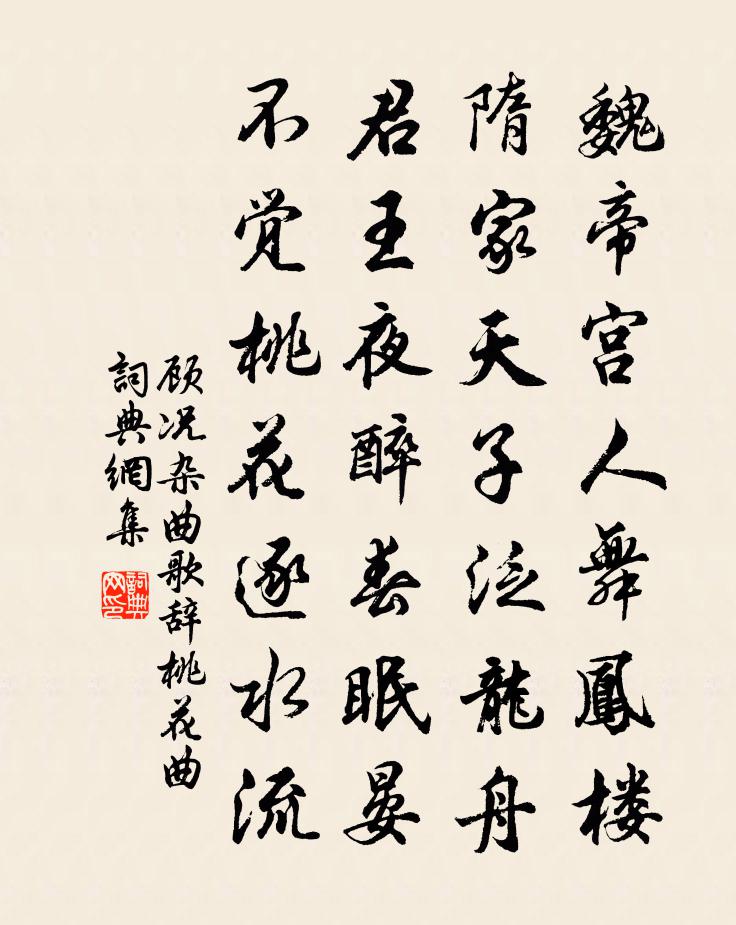 魏帝宫人舞鳳楼
隋家天子泛龍舟
君王夜醉春眠晏
不觉桃花逐水流
顾况杂曲歌辞桃花曲
詞典網集
詞典网印